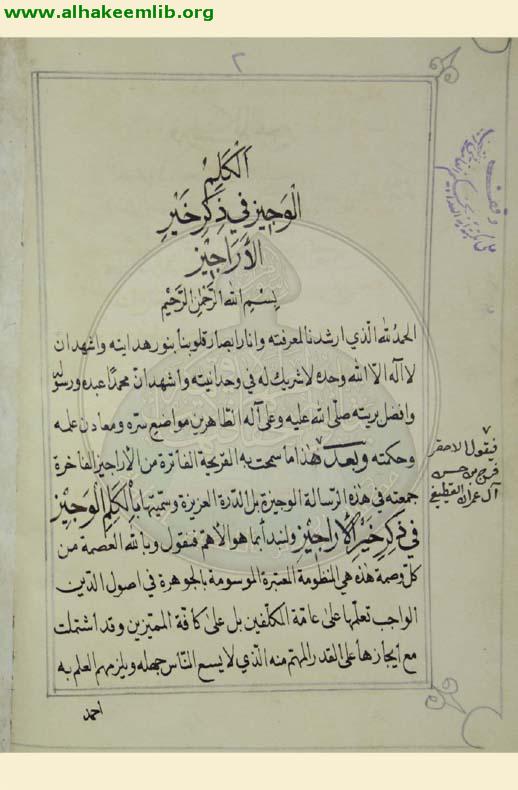 www.alhakeemlib.org
٢
الْكَلِمُ
الْوَجِيزُ فِي ذِكْرِ خَيْرِ
الْأَرَاجِيْزِ
بِسْمِ اللهِ الرَّحْمٰنِ الرَّحِيْمِ
الحمدُ لله الّذي ارشدنا لمعرفته وانار ابصار قلوبنا بنور هدايته واشهد ان
لا اله الّا الله وحده لا شريك له في وحدانيته واشهد انّ محمدًا عبده ورسوله
وافضل بريته صلّى الله عليه وعلى آله الطّاهرين مواضع سرّه ومعادن علمه
وحكمته وبعد ٧ هذا ما سمحت به القريحة الفاترة من الأراجيز الفاخرة
جمعته في هذه الرّسالة الوجيزة بل الدّرة العزيزة وسمّيتها بِالْكَلِمِ الْوَجِيْزِ
فِي ذِكْرِ خَيْرِ الْأَرَاجِيْزِ ولنبدأ بما هو الأهمّ فنقول وبالله العصمة من
كلّ وصمة هذه هي المنظومة المعتبرة الموسومة بالجوهرة في اصول الدّين
الواجب تعلّمها على عامّة المكلّفين بل على كافّة المميّزين وقد اشتملت
مع ايجازها على القدر المهمّ منه الّذي لا يسع النّاس جهله ويلزمهم العلم به
احمد
٧
فيقول الاحقر
فرج بن حسن
آل عمران القطيفي
وقف